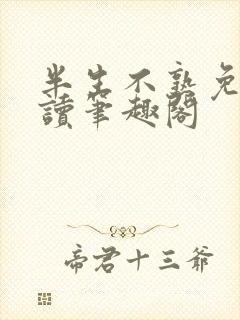 半生不熟免
讀筆趣閣
帝君十三爺